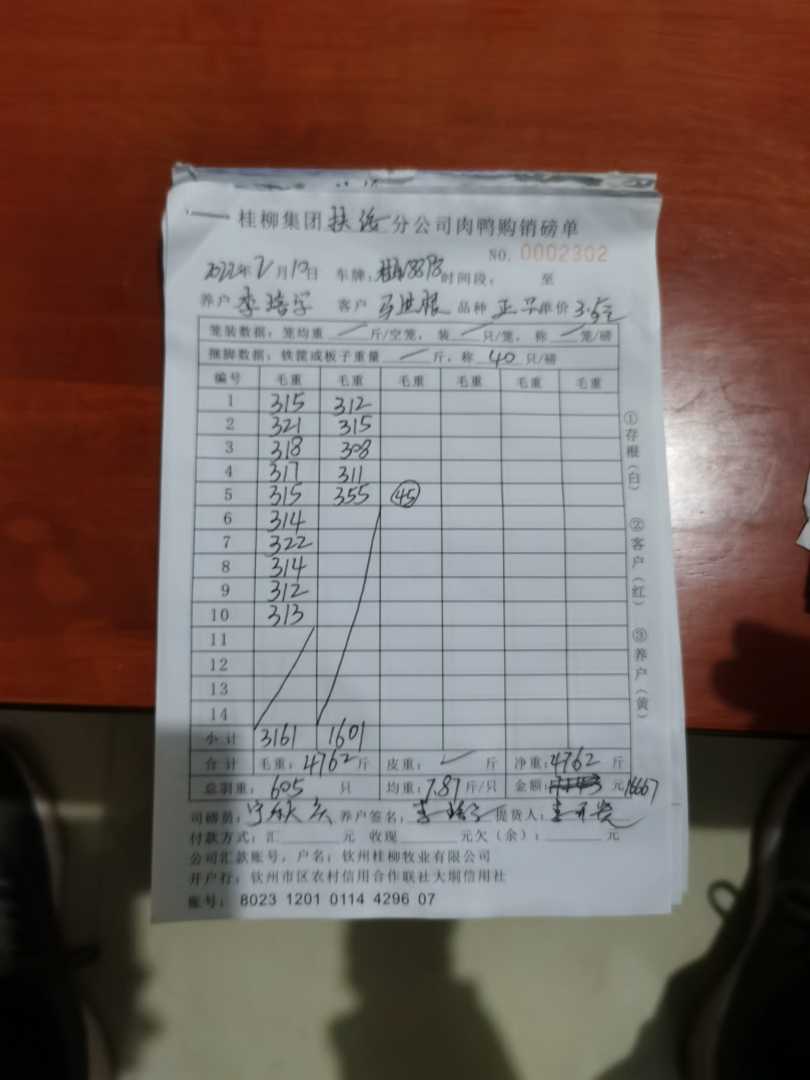 桂柳集团扶绥分公司肉鸭购销磅单
NO. 0002302
2022年2月10日 车牌: 时间段: 至
养户 李培学 客户 马进根 品种 正 单价 3.5元
笼装数据: 笼均重 斤/空笼, 装 只/笼, 称 笼/磅
捆脚数据: 铁篦或板子重量 斤, 称 40 只/磅
编号 毛重 毛重 毛重 毛重 毛重 毛重
1 315 312
2 321 315
3 318 308
4 317 311
5 315 355 45
6 314
7 322
8 314
9 312
10 313
11
12
13
14
小计 3161 1601
合计 毛重: 4762 斤 皮重: 斤 净重: 4762 斤
总羽重: 605 只 均重: 7.87 斤/只 金额: 元 16667
司磅员: 养户签名: 提货人:
付款方式: 汇 元 收现 元欠(余): 元
公司汇款账号, 户名: 钦州桂柳牧业有限公司
开户行: 钦州市区农村信用合作联社大垌信用社
账号: 8023 1201 0114 4296 07
①存根(白)
②客户(红)
③养户(黄)